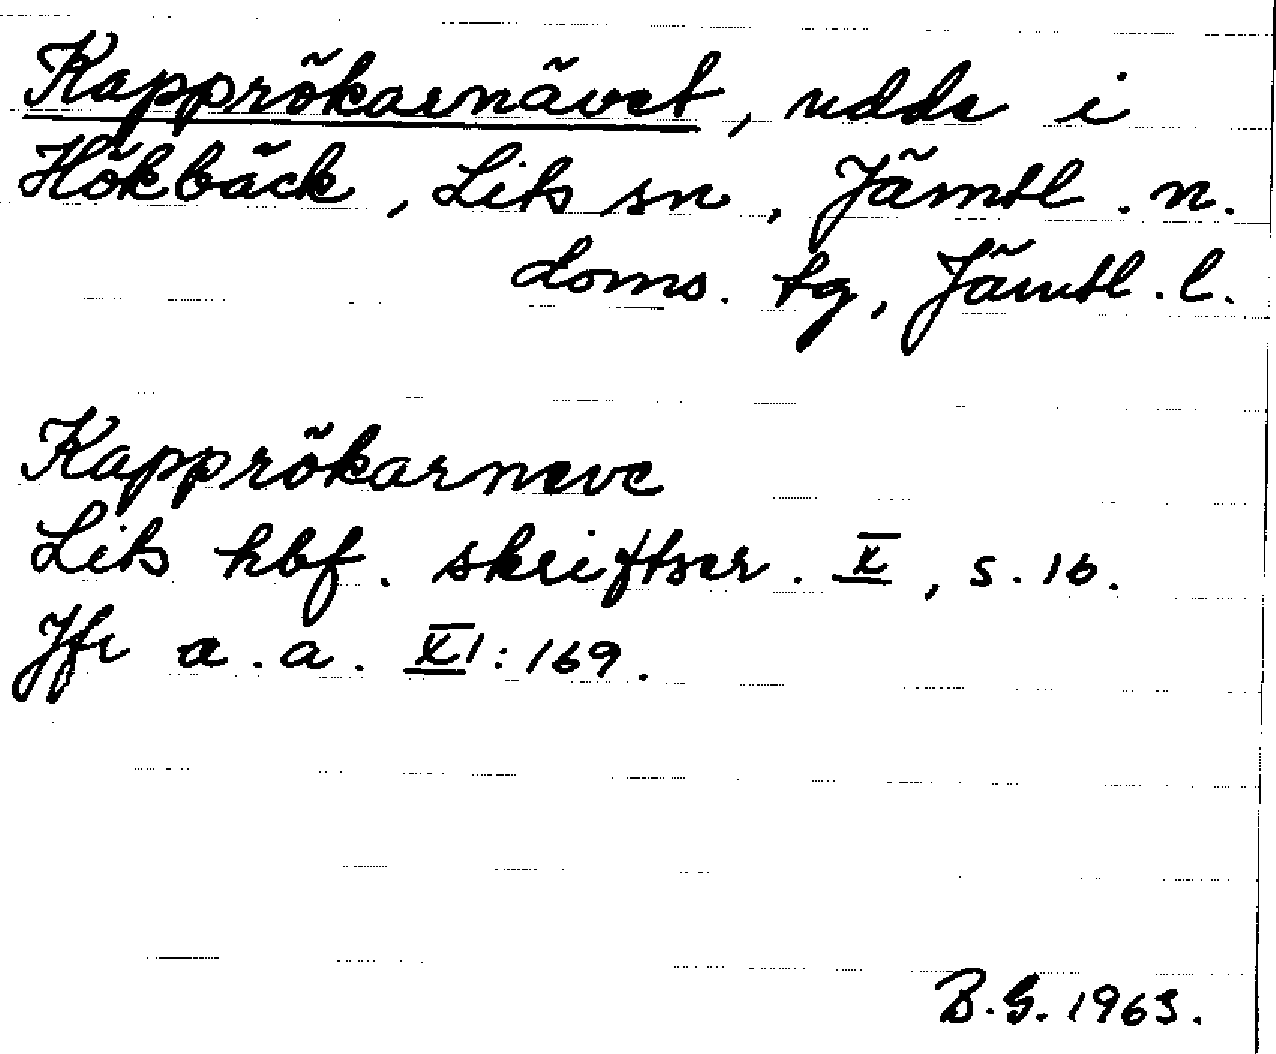 Kapprökarnävet, udde i
Hökbäck, Lits sn, Jämtl. n.
doms. tg, Jämtl. l.
Kapprökarneve
Lits hbf. skriftser. X, s. 16.
Jfr a. a. XI: 169.
B.G. 1963.